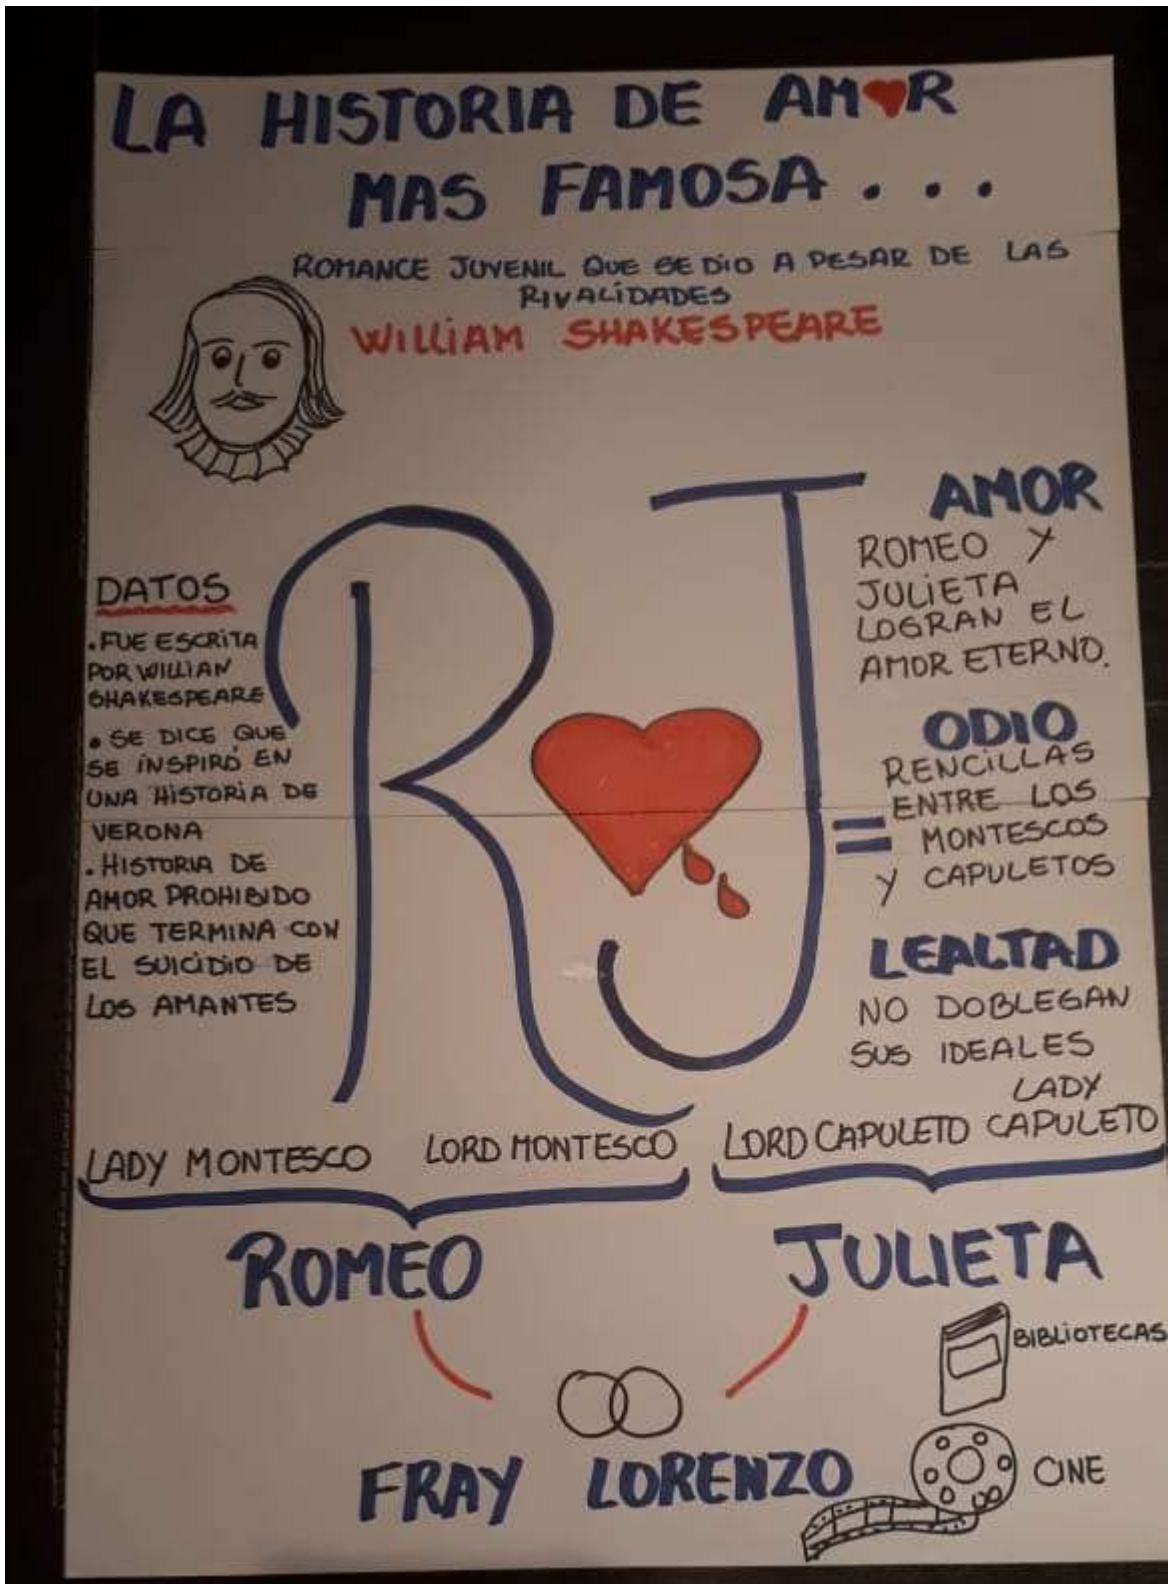 LA HISTORIA DE AMOR
MAS FAMOSA . . .
ROMANCE JUVENIL QUE SE DIO A PESAR DE LAS
RIVALIDADES
WILLIAM SHAKESPEARE
DATOS
. FUE ESCRITA
POR WILLIAN
SHAKESPEARE
. SE DICE QUE
SE INSPIRÓ EN
UNA HISTORIA DE
VERONA
. HISTORIA DE
AMOR PROHIBIDO
QUE TERMINA CON
EL SUICIDIO DE
LOS AMANTES
R J
AMOR
ROMEO Y
JULIETA
LOGRAN EL
AMOR ETERNO.
ODIO
RENCILLAS
= ENTRE LOS
MONTESCOS
Y CAPULETOS
LEALTAD
NO DOBLEGAN
SUS IDEALES
LADY MONTESCO LORD MONTESCO
LORD CAPULETO LADY
CAPULETO
ROMEO JULIETA
BIBLIOTECAS
FRAY LORENZO
CINE